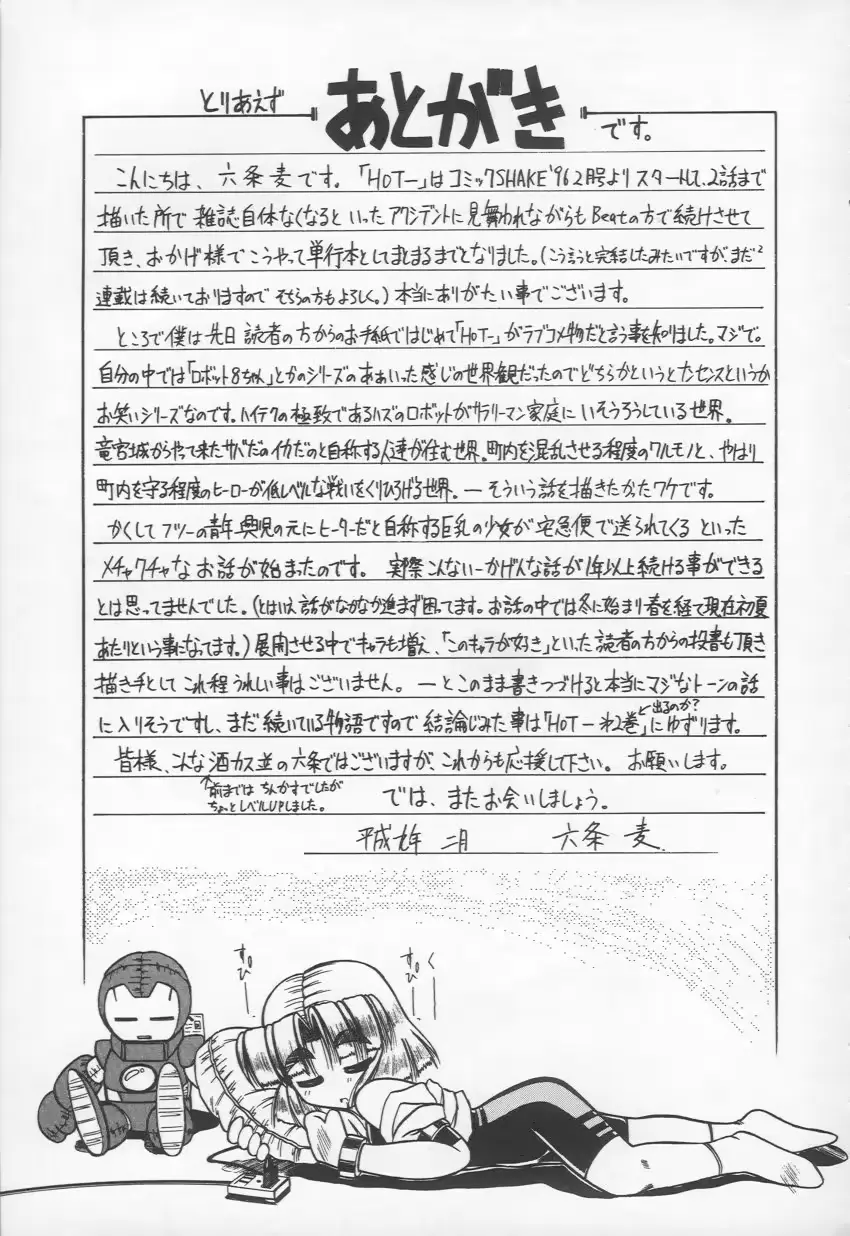 とりあえず
あとがき
です。
こんにちは、六条麦です。「HOT―」はコミックSHAKE'96 2月号よりスタートして、2話まで
描いた所で雑誌自体なくなるといったアクシデントに見舞われながらもBeatの方で続けさせて
頂き、おかげ様でこうやって単行本としてまとまるまでとなりました。(こう言うと完結したみたいですが、まだ2
連載は続いておりますのでそちらの方もよろしく。)本当にありがたい事でございます。
ところで僕は先日読者の方からのお手紙ではじめて「HOT―」がラブコメ物だと言う事を知りました。マジで。
自分の中では「ロボット8ちゃん」とかのシリーズのああいった感じの世界観だったのでどちらかというとナンセンスというか
お笑いシリーズなのです。ハイテクの極致であるハズのロボットがサラリーマン家庭にいそうろうしている世界。
竜宮城からやって来たサバだのイカだのと自称する人達が住む世界。町内を混乱させる程度のワルモノと、やはり
町内を守る程度のヒーローが低レベルな戦いをくりひろげる世界。―そういう話を描きたかったワケです。
かくしてフツーの青年興児の元にヒーターだと自称する巨乳の少女が宅急便で送られてくるといった
メチャクチャなお話が始まったのです。実際こんないーかげんな話が1年以上続ける事ができる
とは思ってませんでした。(とはいえ話がなかなか進まず困ってます。お話の中では冬に始まり春を経て現在初夏
あたりという事になってます。)展開させる中でキャラも増え、「このキャラが好き」といった読者の方からの投書も頂き
描き手としてこれ程うれしい事はございません。―とこのまま書きつづけると本当にマジなトーンの話
に入りそうですし、まだ続いている物語ですので結論じみた事は「HOT―第2巻」にゆずります。
出るのか?
皆様、こんな酒カス並の六条ではございますが、これからも応援して下さい。お願いします。
↑前まではちんかすでしたが
ちょっとレベルUPしました。
では、またお会いしましょう。
平成九年 二月 六条 麦
すぴー
すぴくー